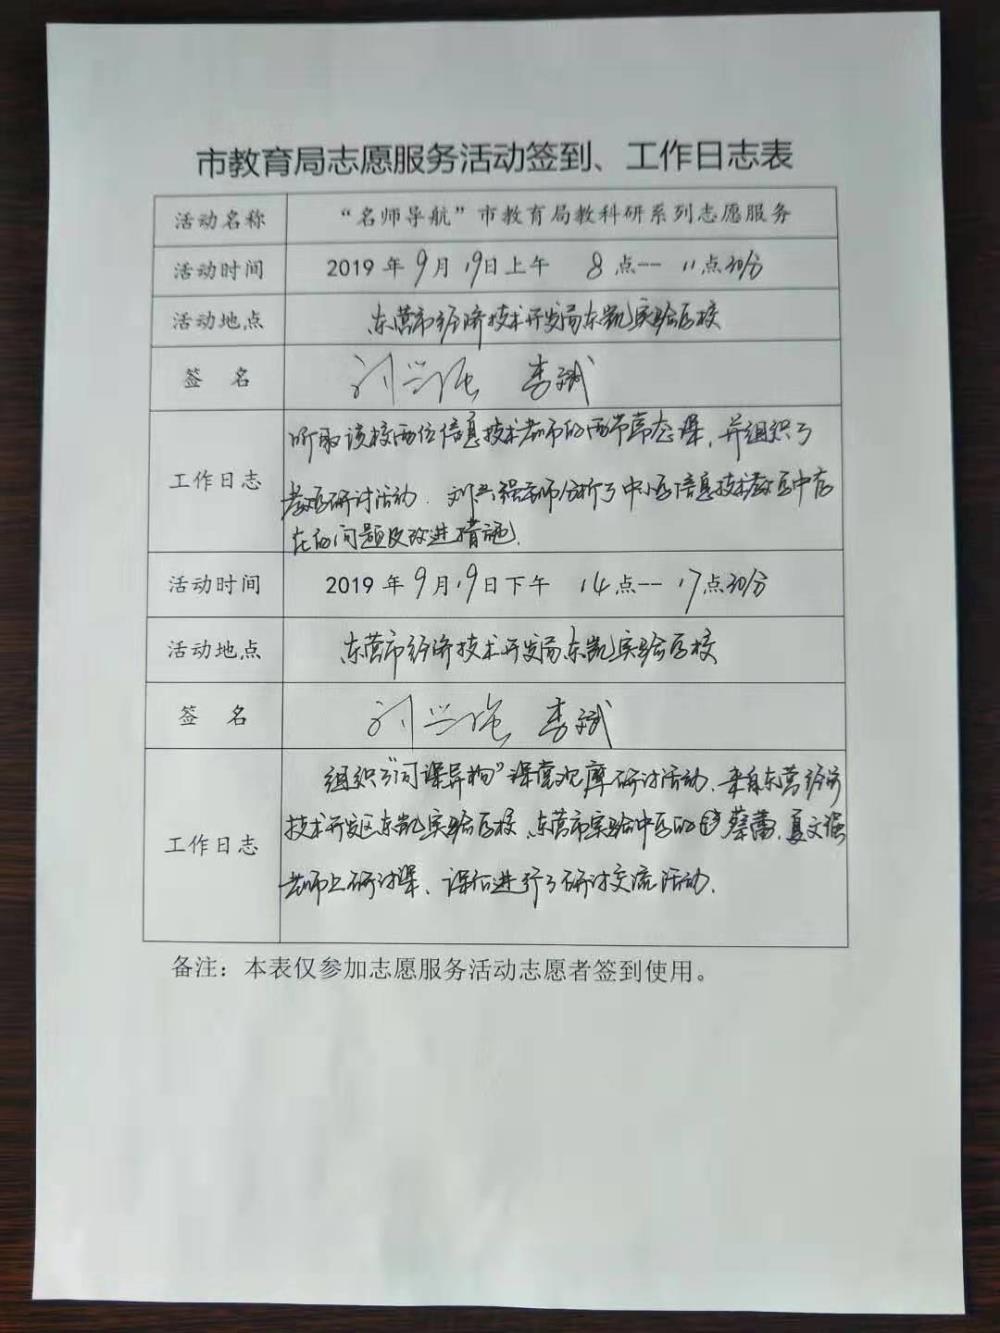 市教育局志愿服务活动签到、工作日志表
活动名称 “名师导航”市教育局教科研系列志愿服务
活动时间 2019年9月19日上午 8点--11点30分
活动地点 东营市经济技术开发区东凯实验学校
签 名 刘兴强 李斌
工作日志 听取该校两位信息技术老师的两节常态课,并组织了
教学研讨活动.刘兴强老师分析了中小学信息技术教学中存
在的问题及改进措施.
活动时间 2019年9月19日下午 14点--17点30分
活动地点 东营市经济技术开发区东凯实验学校
签 名 刘兴强 李斌
工作日志 组织了“同课异构”课堂观摩研讨活动.来自东营经济
技术开发区东凯实验学校、东营市实验中学的蔡蕾、夏文强
老师上研讨课、课后进行了研讨交流活动.
备注：本表仅参加志愿服务活动志愿者签到使用。